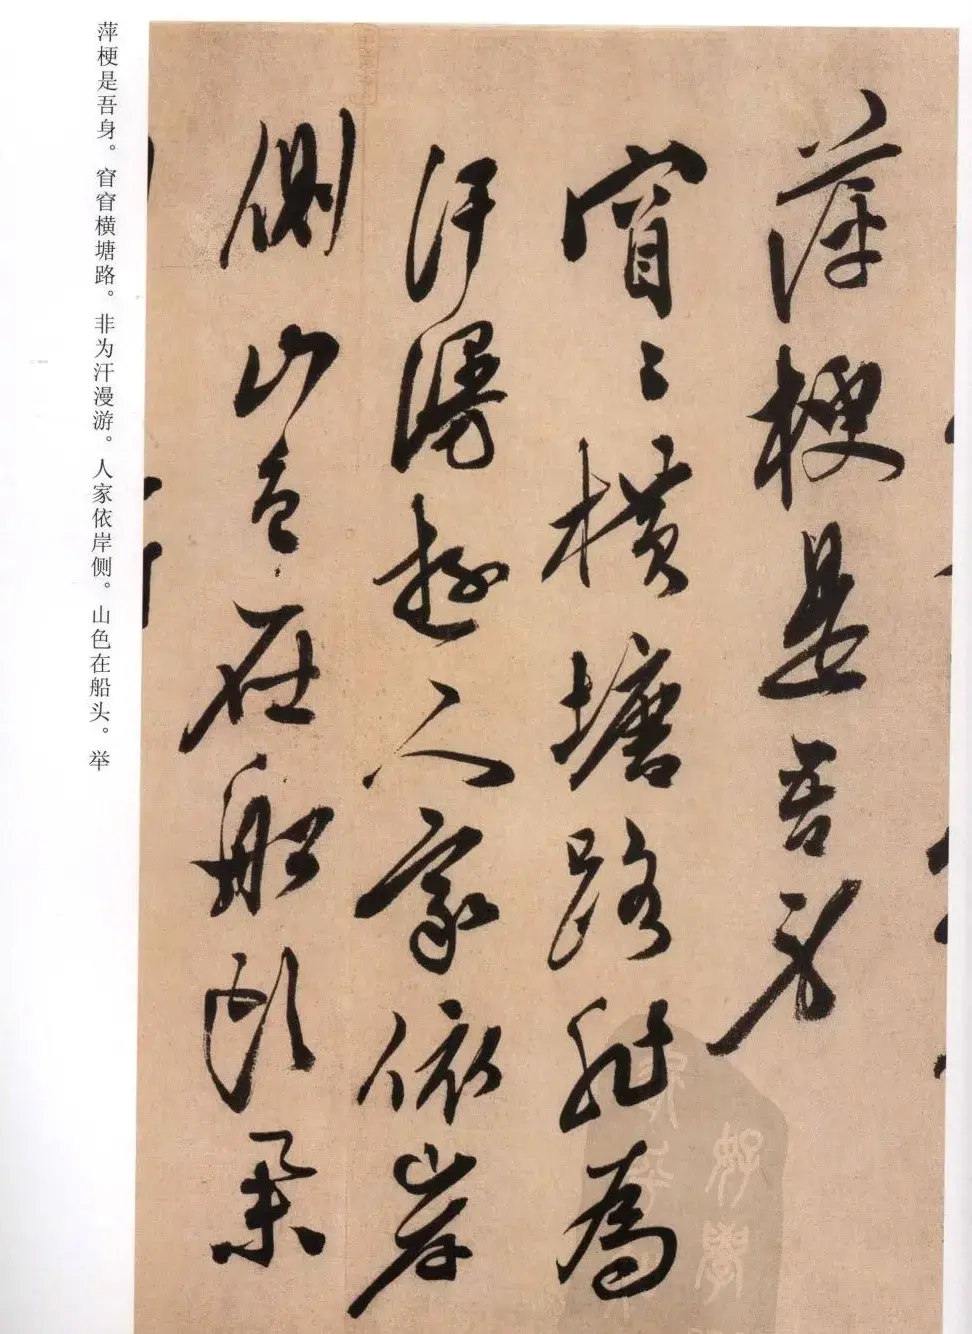 萍梗是吾身
窅〻橫塘路非為
汗漫遊人家依岸
側山色在船頭
萍梗是吾身。窅窅横塘路。非为汗漫游。人家依岸侧。山色在船头。举